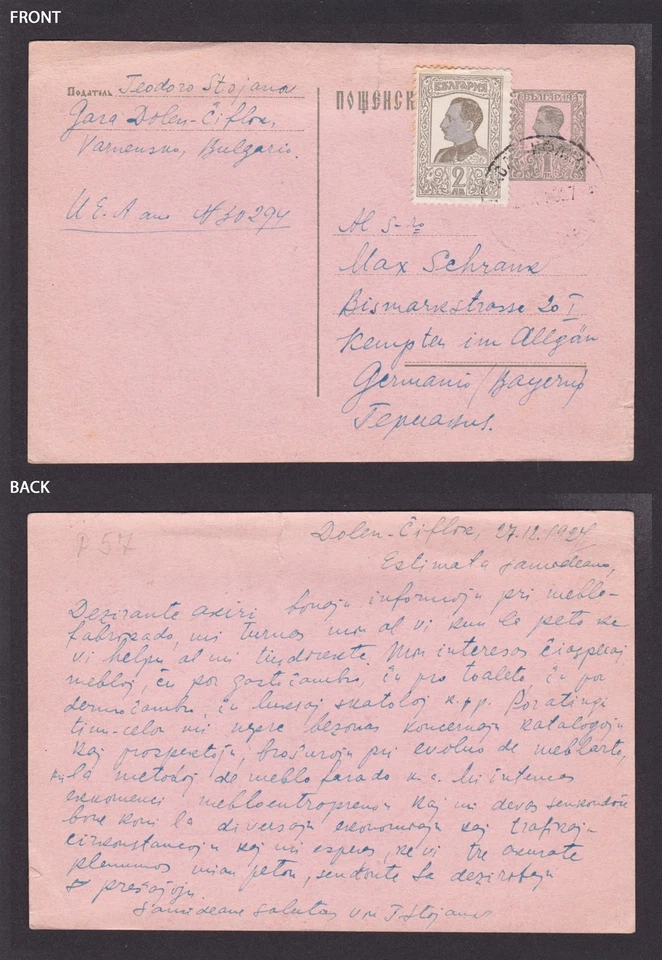 FRONT
Податель Teodoro Stojanov
Gara Dolen-Ĉiflik,
Varnensko, Bulgario.
U.E.A. ano N 30294
ПОЩЕНСК
БЪЛГАРИЯ
2
ЛВ
БЪЛГАРИЯ
1
Al S-ro
Max Schrank
Bismarkstrasse 20 I
Kempten im Allgäu
Germanio / Bayern /
Германия.
BACK
P 57
Dolen-Ĉiflik, 27.12.1927
Estimata samideano,
Dezirante akiri bonajn informojn pri meblo-
fabrikado, mi turnas min al vi kun la peto ke
vi helpu al mi tiudirekte. Min interesas ĉiaspecaj
mebloj, ĉu por gastĉambro, ĉu por toaleto, ĉu por
dormoĉambro, ĉu luksaj skatoloj k.t.p. Por atingi
tiun celon mi nepre bezonas koncernajn katalogojn
kaj prospektojn, broŝurojn pri evoluo de meblarto,
kaj la metodoj de meblofarado k.c. Mi intencas
ekkomenci mebloentreprenon kaj mi devas senkondiĉe
bone koni la diversajn ekonomiajn kaj trafikajn
cirkonstancojn kaj mi esperas, ke vi tre akurate
plenumos mian peton, sendonte la deziratajn
prezojn.
Samideane salutas vin T. Stojanov